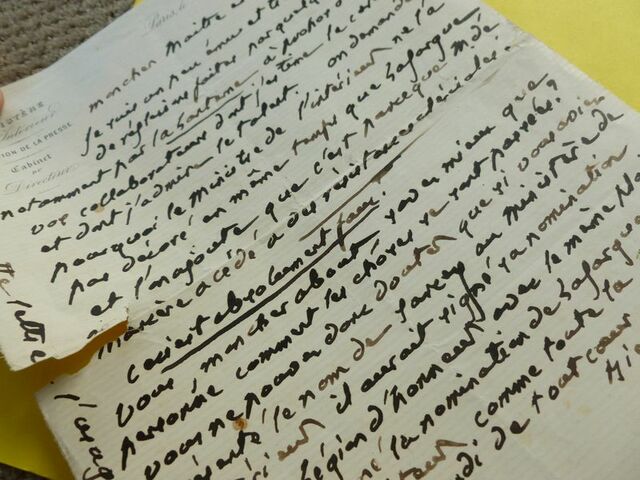 Paris, le
MINISTÈRE
Intérieur
DIRECTION DE LA PRESSE
Cabinet
DU
Directeur
mon cher Maitre et
Je suis un peu ému et tr
de réflexions faites par quelqu
notamment par la Fortune à propos d
vos collaborateurs dont j'estime le car
et dont j'admire le talent. on demande
pourquoi le Ministre de l'intérieur ne l'a
pas décoré en même temps que Lafargue
et l'on ajoute que c'est parce que M de
Marcère a cédé à des résistances cléricales.
Ceci est absolument faux.
Vous, mon cher about, savez mieux que
personne comment les choses se sont passées?
vous ne pouvez donc douter que si vous aviez
présenté le nom de Sarcey au ministère de
l'intérieur il aurait signé sa nomination
légion d'honneur avec le même
la nomination de Lafargue
comme toute la
de tout cœur